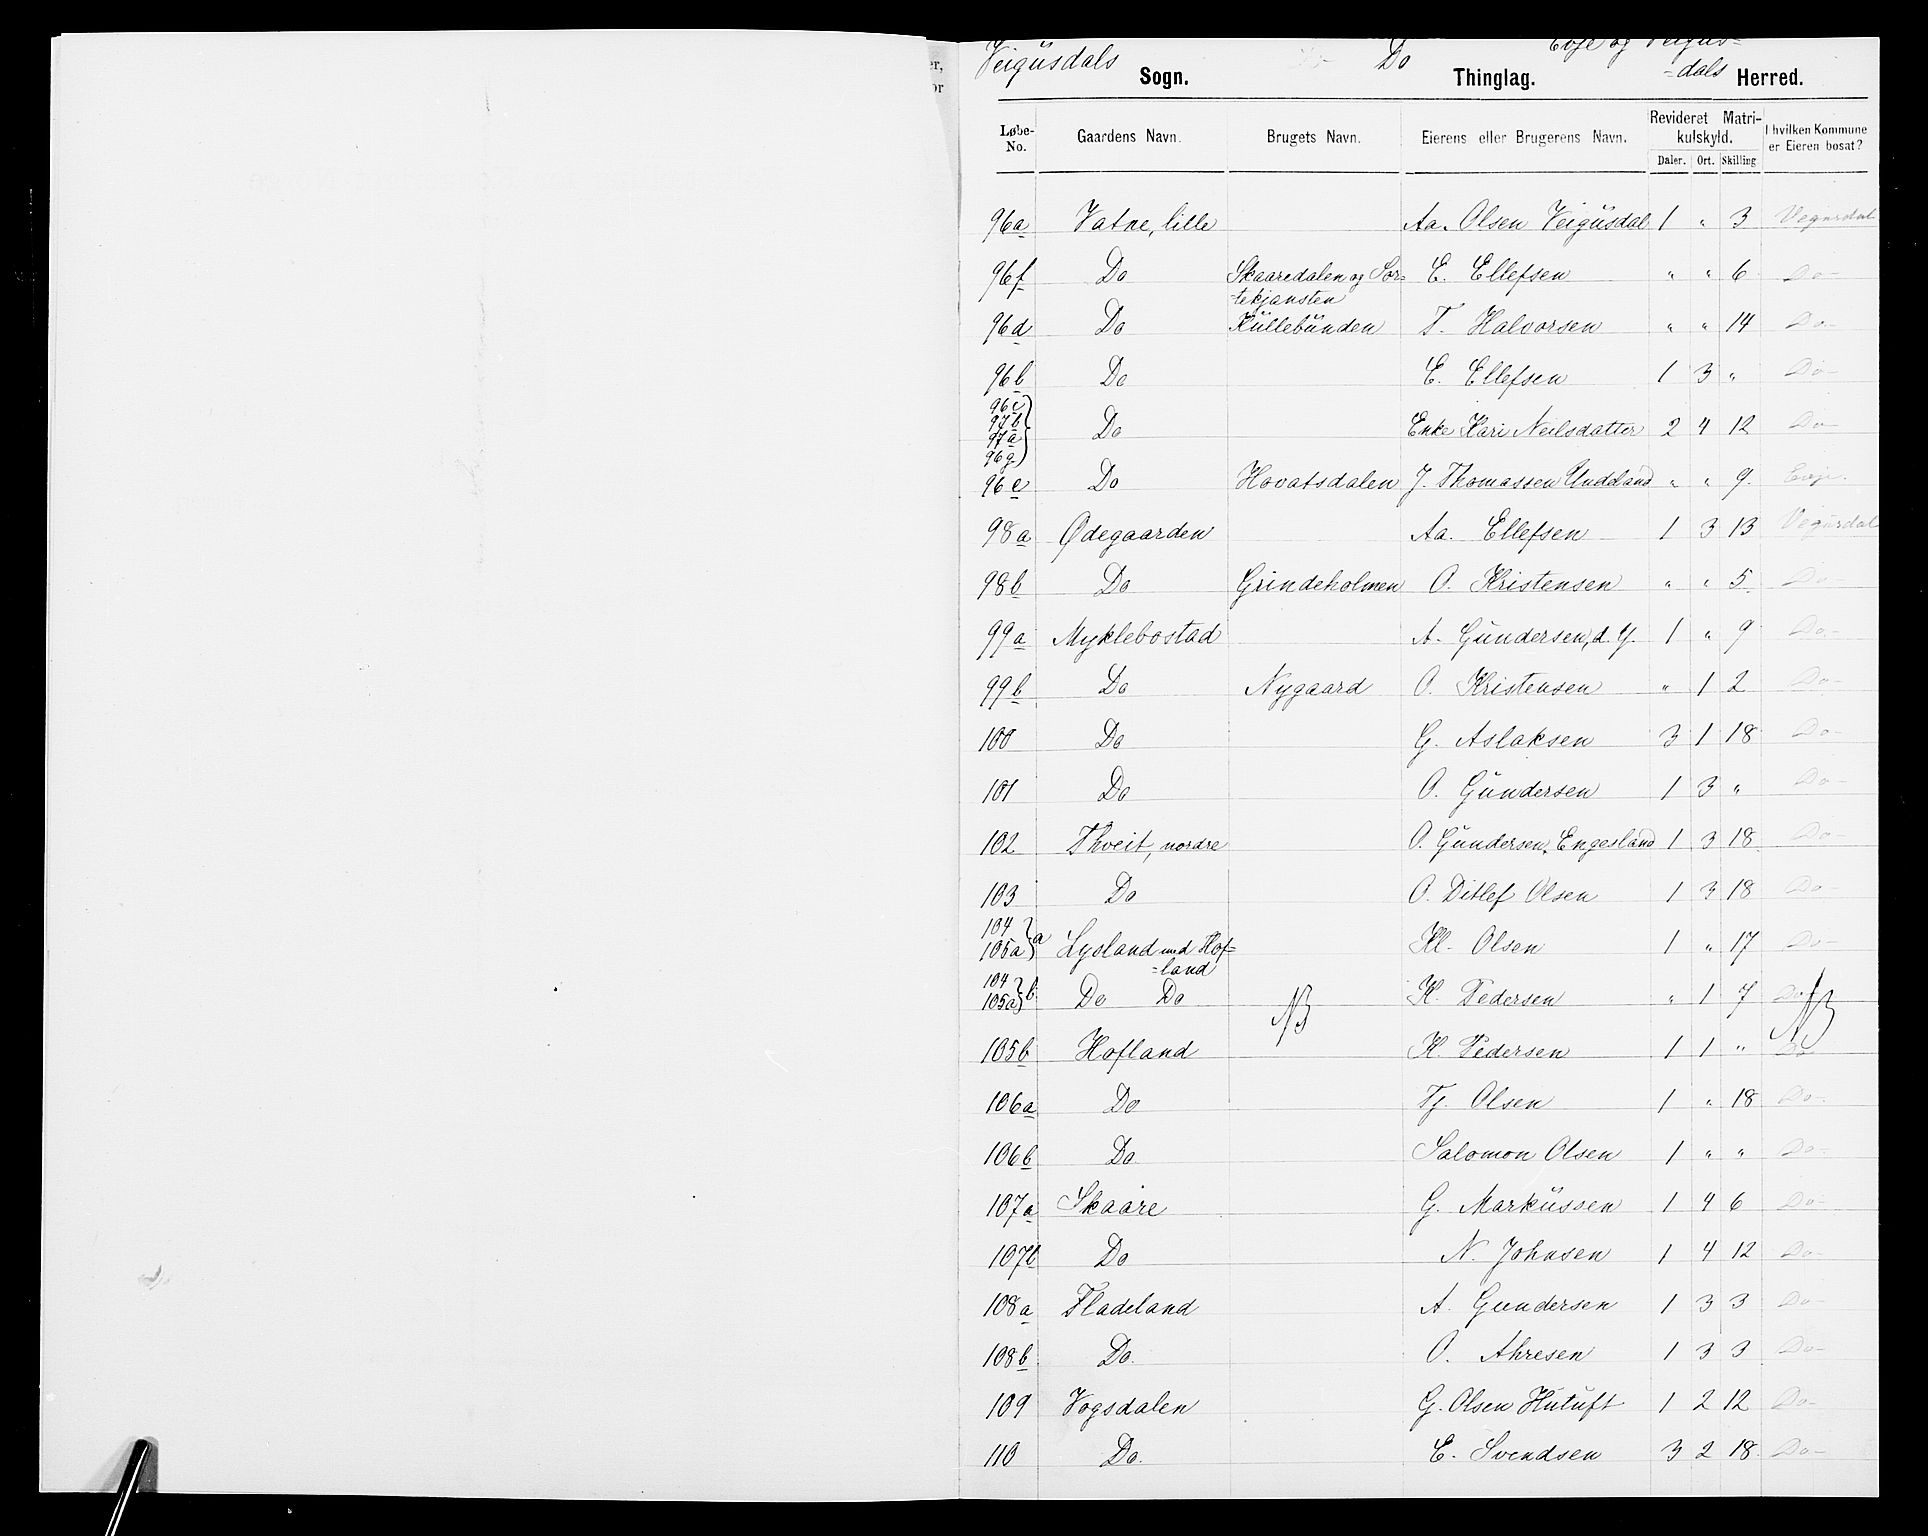 Veigusdals Sogn. Do Thinglag. Evje og Veigus-
-dals Herred.
Løbe-No. Gaardens Navn. Brugets Navn. Eierens eller Brugerens Navn. Revideret Matrikulskyld. Daler. Ort. Skilling I hvilken Kommune er Eieren bosat?
96a Vatne, lille Aa. Olsen Veigusdal 1 " 3 Vegusdal
96f Do Skaaredalen og Sor- E. Ellefsen " " 6 Do-
-tekjansten
96d Do Küllebünden T. Halvorsen " " 14 Do-
96b Do E. Ellefsen 1 3 " Do-
96c
97b
97a Do Enke Kari Neilsdatter 2 4 12 Do-
96g
96e Do Hovatsdalen J. Thomassen Uddeland " " 9 Evje.
98a Ødegaarden Aa. Ellefsen 1 3 13 Vegusdal
98b Do Grindeholmen O. Kristensen " " 5 Do-
99a Myklebostad A. Gundersen, d. Y. 1 " 9 Do-
99b Do Nygaard O. Kristensen " 1 2 Do-
100 Do G. Aslaksen 3 1 18 Do-
101 Do O. Gundersen 1 3 " Do-
102 Thveit, nordre O. Gundersen, Engesland 1 3 18 Do-
103 Do O. Ditlef Olsen 1 3 18 Do-
104
105a } a Lysland med Hof- Kl. Olsen 1 " 17 Do-
-land
104
105a } b Do Do K. Pedersen " 1 7 Do
NB NB
105b Hofland K. Pedersen 1 1 " Do
106a Do Tj. Olsen 1 " 18 Do-
106b Do Salomon Olsen 1 " " Do-
107a Skaare G. Markussen 1 4 6 Do-
107b Do N. Johnsen 1 4 12 Do-
108a Fladeland A. Gundersen 1 3 3 Do-
108b Do O. Ahresen 1 3 3 Do-
109 Vogsdalen G. Olsen Hutuft 1 2 12 Do-
110 Do. E. Svendsen 3 2 18 Do-